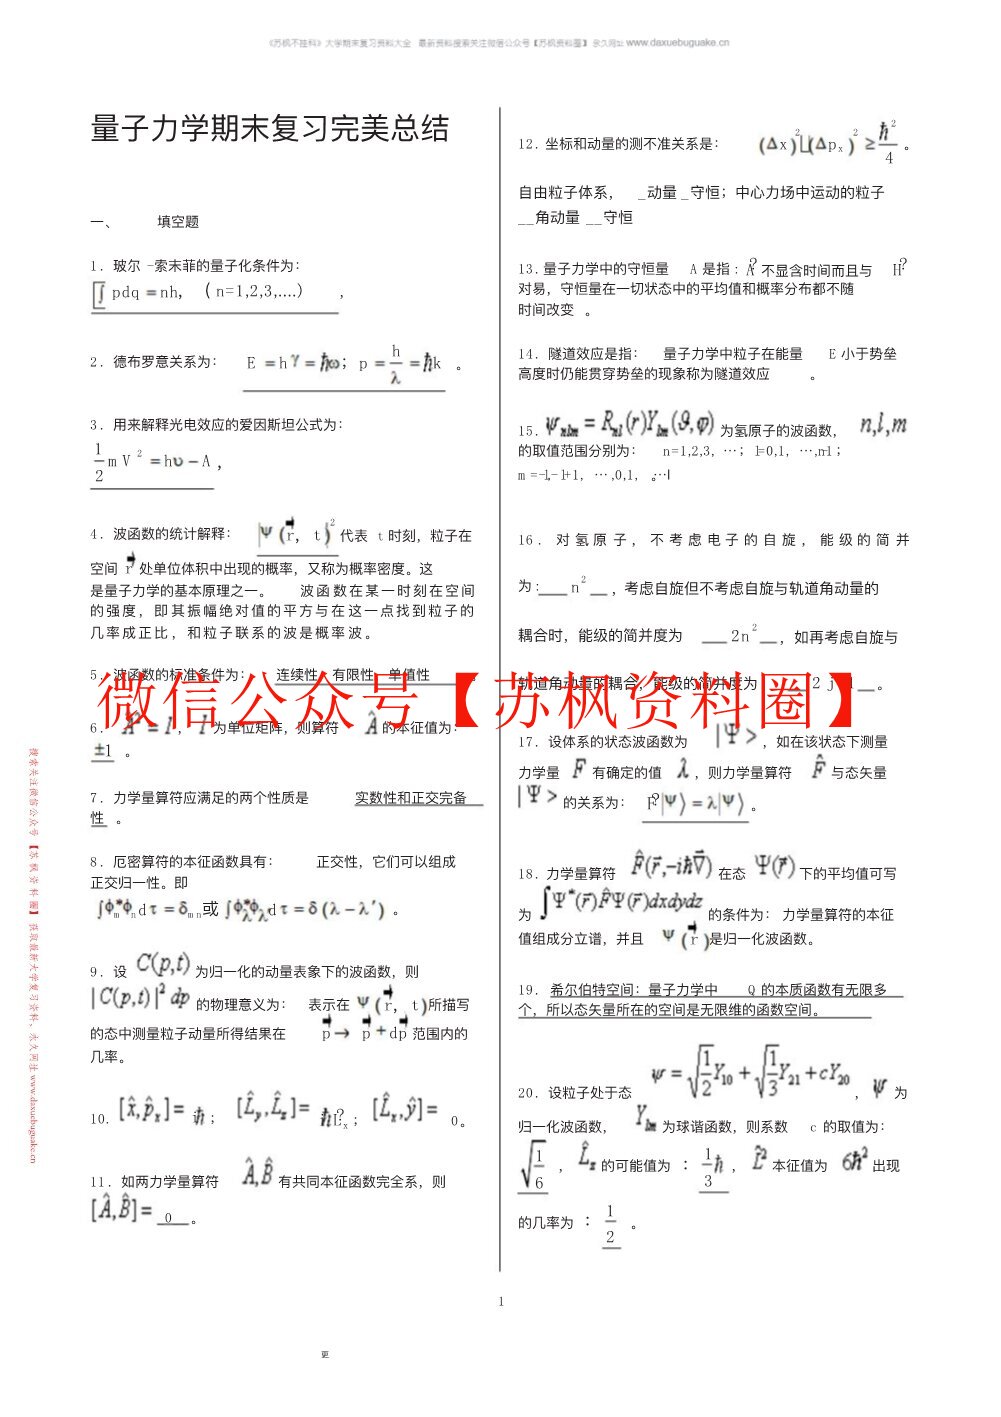 《苏枫不挂科》大学期末复习资料大全 最新资料搜索关注微信公众号【苏枫资料圈】 永久网址 www.daxuebuguake.cn
量子力学期末复习完美总结
一、 填空题
1. 玻尔 -索末菲的量子化条件为：
∫ pdq = nh， ( n=1,2,3,....) ，
2. 德布罗意关系为： E = hγ = ħω； p = h/λ = ħk 。
3. 用来解释光电效应的爱因斯坦公式为：
1/2 m V² = hυ − A ，
4. 波函数的统计解释： |Ψ(r⃗, t)|² 代表 t 时刻，粒子在
空间 r⃗ 处单位体积中出现的概率，又称为概率密度。这
是量子力学的基本原理之一。 波函数在某一时刻在空间
的强度，即其振幅绝对值的平方与在这一点找到粒子的
几率成正比，和粒子联系的波是概率波。
5. 波函数的标准条件为： 连续性，有限性，单值性
微信公众号【苏枫资料圈】
6. ，I 为单位矩阵，则算符 Â 的本征值为：
±1 。
7. 力学量算符应满足的两个性质是 实数性和正交完备
性 。
8. 厄密算符的本征函数具有： 正交性，它们可以组成
正交归一性。即
∫ϕ*ₘϕₙdτ = δₘₙ或 ∫ϕ*_λϕ_λ'dτ = δ(λ − λ′) 。
9. 设 C(p,t) 为归一化的动量表象下的波函数，则
|C(p,t)|² dp 的物理意义为： 表示在 Ψ(r⃗, t)所描写
的态中测量粒子动量所得结果在 p⃗ → p⃗ + dp⃗ 范围内的
几率。
10. [x̂,p̂ₓ]= iħ ； [L̂_y,L̂_z]= ħL?ₓ ； [L̂ₓ,ŷ]= 0。
11. 如两力学量算符 Â,B̂ 有共同本征函数完全系，则
[Â,B̂]= _0_ 。
12. 坐标和动量的测不准关系是： (Δx)²(Δpₓ)² ≥ ħ²/4 。
自由粒子体系， _动量 _守恒；中心力场中运动的粒子
__角动量 __守恒
13. 量子力学中的守恒量 A 是指：A? 不显含时间而且与 H?
对易，守恒量在一切状态中的平均值和概率分布都不随
时间改变 。
14. 隧道效应是指： 量子力学中粒子在能量 E 小于势垒
高度时仍能贯穿势垒的现象称为隧道效应 。
15. ψnlm = Rnl(r)Ylm(ϑ,φ) 为氢原子的波函数， n,l,m
的取值范围分别为： n=1,2,3, …； l=0,1, …,n-1；
m =-l,-l+1, … ,0,1, …l 。
16. 对氢原子，不考虑电子的自旋，能级的简并
为： n² ，考虑自旋但不考虑自旋与轨道角动量的
耦合时，能级的简并度为 2n² ，如再考虑自旋与
轨道角动量的耦合，能级的简并度为 2 j 。
17. 设体系的状态波函数为 |Ψ> ，如在该状态下测量
力学量 F 有确定的值 λ ，则力学量算符 F̂ 与态矢量
|Ψ> 的关系为： F?|Ψ⟩ = λ|Ψ⟩ 。
18. 力学量算符 F̂(r⃗,−iħ∇⃗) 在态 Ψ(r⃗) 下的平均值可写
为 ∫Ψ*(r⃗)F̂Ψ(r⃗)dxdydz 的条件为： 力学量算符的本征
值组成分立谱，并且 Ψ(r⃗)是归一化波函数。
19. 希尔伯特空间：量子力学中 Q 的本质函数有无限多
个，所以态矢量所在的空间是无限维的函数空间。
20. 设粒子处于态 ψ = √(1/2)Y₁₀ + √(1/3)Y₂₁ + cY₂₀ ， ψ 为
归一化波函数， Ylm 为球谐函数，则系数 c 的取值为：
√(1/6) ， L̂_z 的可能值为 ： 1/3 ħ ， L̂² 本征值为 6ħ² 出现
的几率为 ： 1/2 。
1
更
搜索关注微信公众号【苏枫资料圈】获取最新大学复习资料，永久网址 www.daxuebuguake.cn